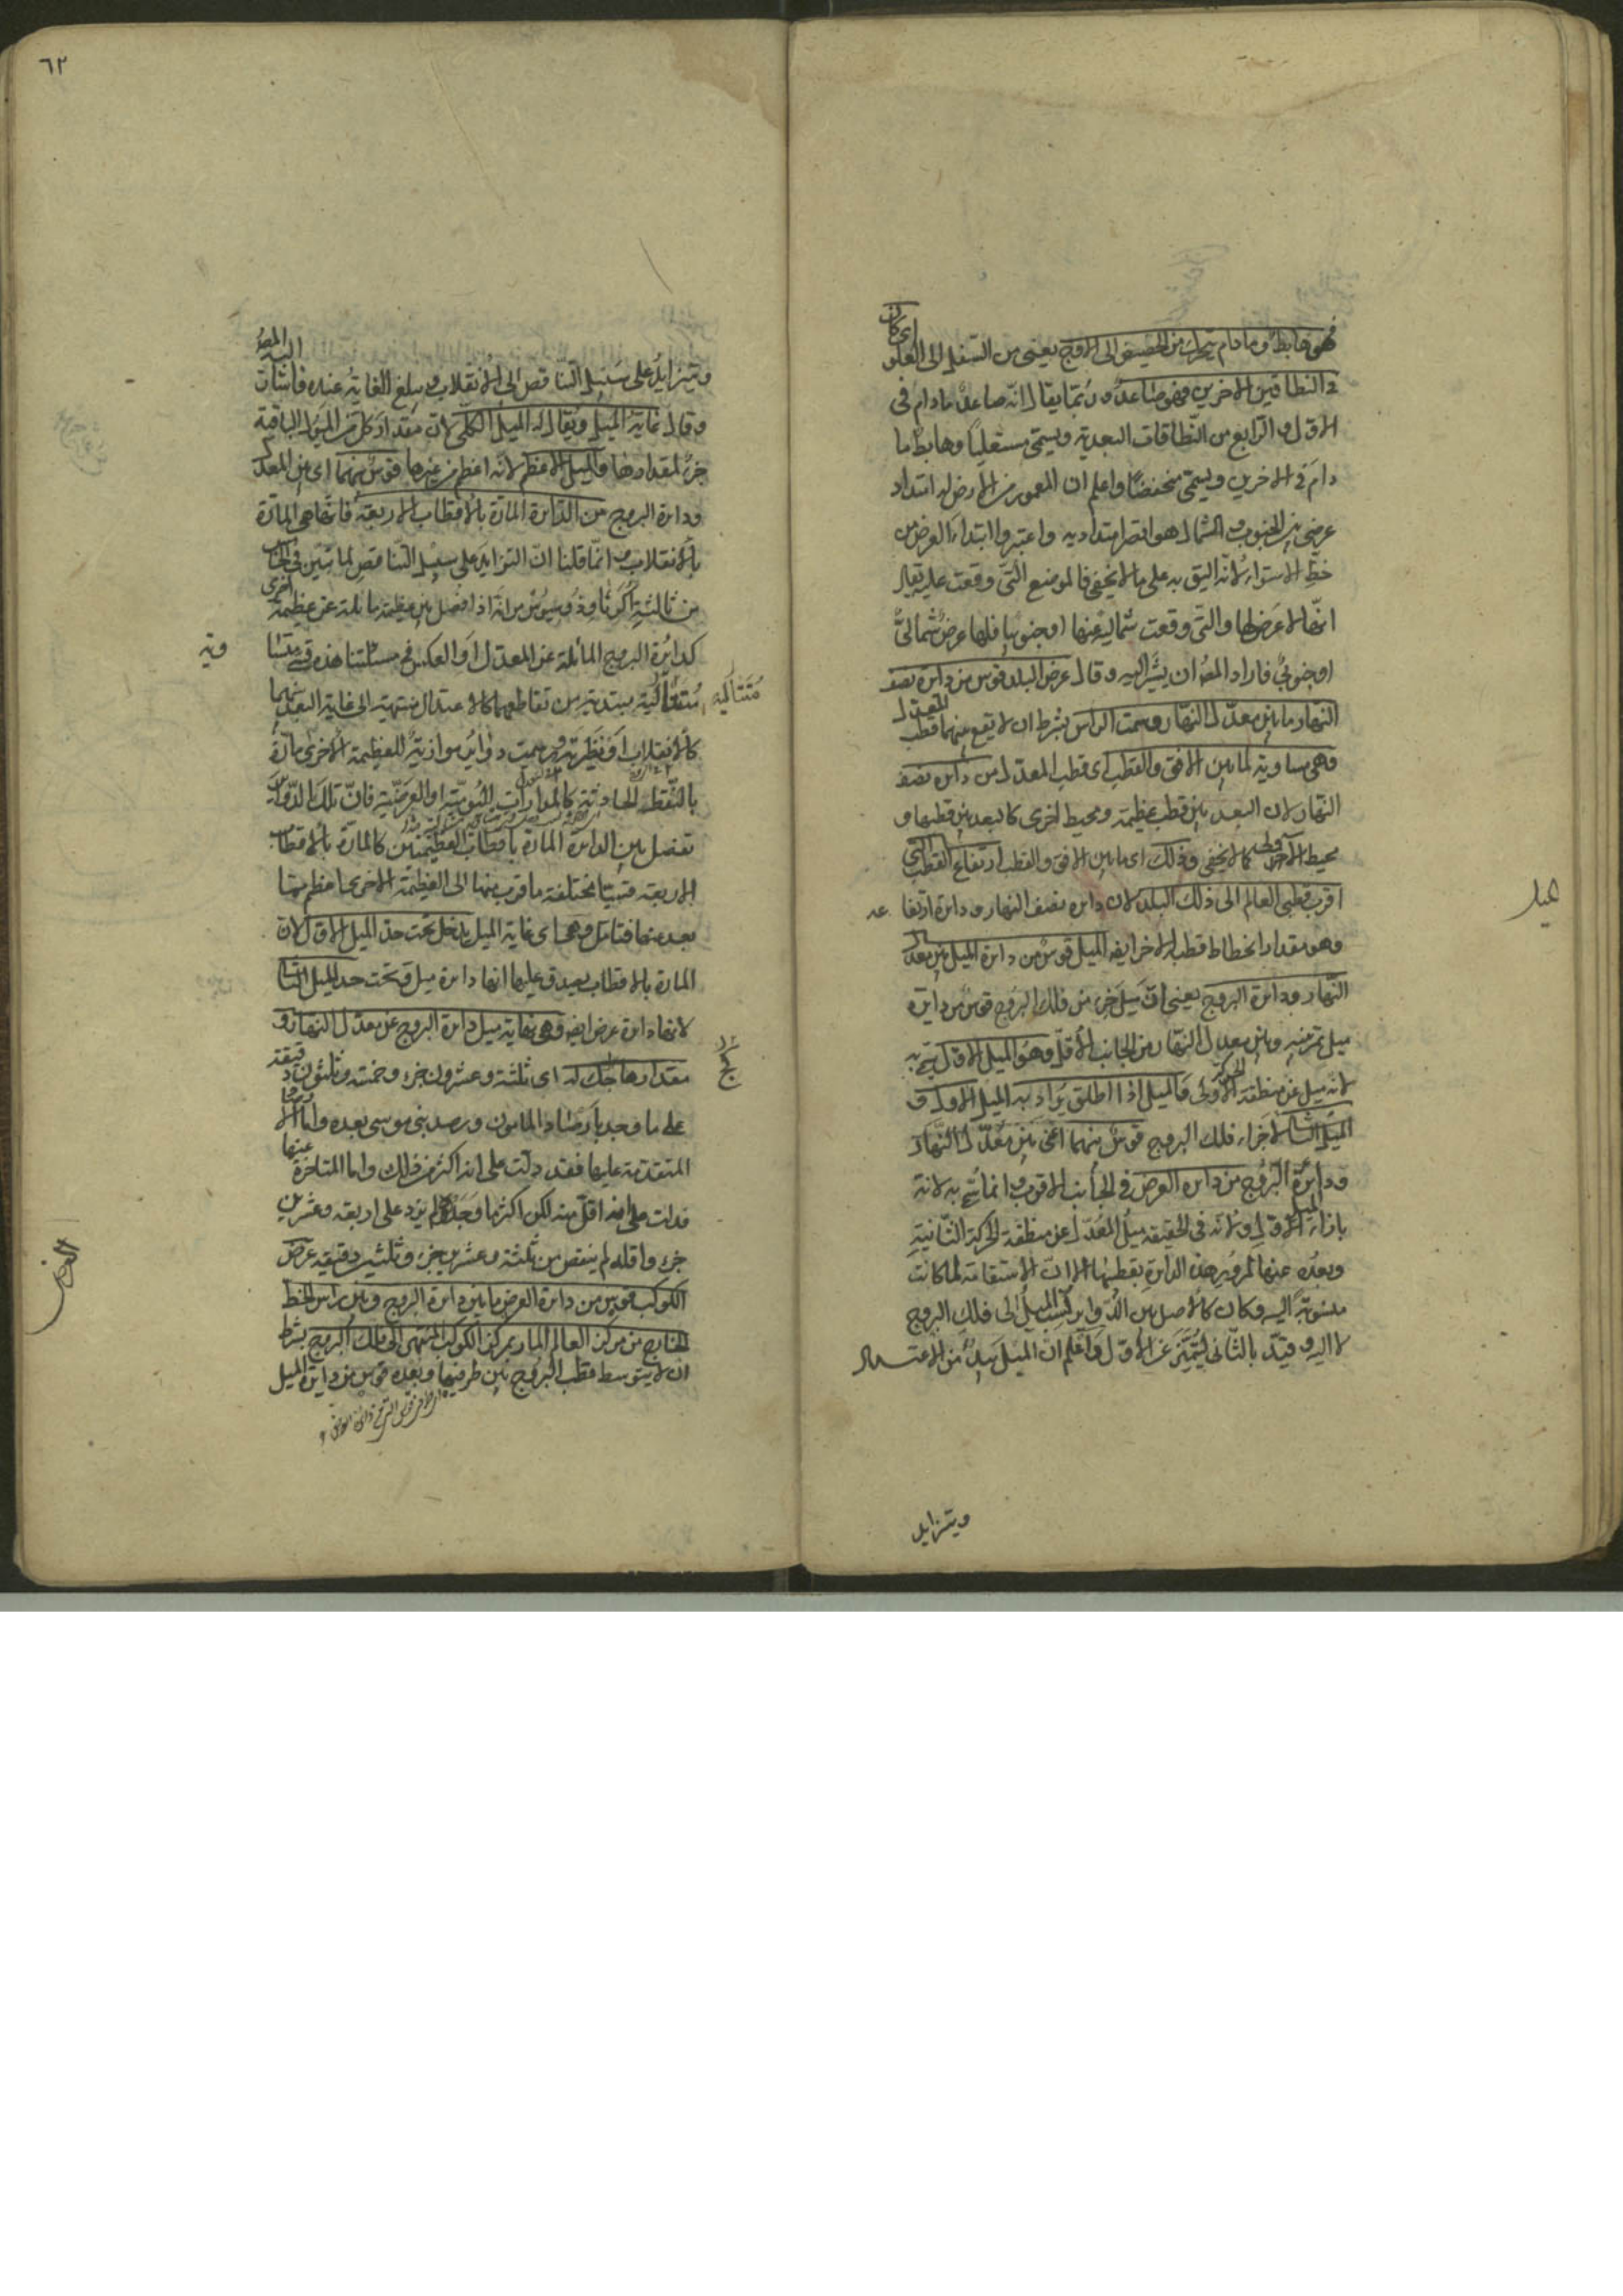 فهو هابط وما دام يتحرك من الحضيض الى الاوج يعنى من السفل الى العلو اى كان
فى النطاقين الاخرين فهو صاعد وربما يقال انه صاعد ما دام فى
الاول والرابع من النطاقات البعدية ويسمى مستعليا وهابط ما
دام فى الاخرين ويسمى منخفضا واعلم ان المعمور من الارض له امتداد
عرضى بين الجنوب والشمال هو اقصر امتداديه واعتبروا ابتداء العرض من
خط الاستواء لانه اليق به على ما لا يخفى فالمواضع التى وقعت عليه يقال
انها لا عرض لها والتى وقعت شماليه عنها او جنوبيا فلها عرض شمالى
او جنوبى فاراد المصـ ان يشير اليه وقال عرض البلد قوس من دايره نصف
النهار ما بين معدل النهار وسمت الراس بشرط ان لا يقع بينهما قطب المعدل
وهى مساوية لما بين الافق والقطب اى قطب المعدل من دايره نصف
النهار لان البعد بين قطب عظيمة ومحيط اخرى كالبعد بين قطبها و
محيط الاخر كما لا يخفى وذلك اى ما بين الافق والقطب ارتفاع القطب الذى
اقرب قطبى العالم الى ذلك البلد لان دايره نصف النهار دايرة ارتفاعـه
وهو مقدار انحطاط قطب الاخر ايضا الميل قوس من دايرة الميل بين معدل
النهار ودايرة البروج يعنى ان ميل جزء من فلك البروج قوس من دايرة
ميل تمر به وبين معدل النهار من الجانب الاقل وهو الميل الاول سمى به
لانه ميل عن منطقة الحركة الاولى فالميل اذا اطلق يراد به الميل الاول و
الميل الثانى لاجزاء فلك البروج قوس بينهما اعنى بين معدل النهار
ودائرة البروج من دايره العرض فى الجانب الاقرب وانما سمى به لانه
بازاء الميل الاول ولانه فى الحقيقة ميل المعدل عن منطقة الحركة الثانية
وبعده عنها لمرور هذه الدايرة بقطبيها الا ان الاستقامة لما كانت
منسوبة اليه وكان كالاصل بين الدواير نسب الميل الى فلك البروج
لا اليه وقيد بالثانى ليتميز عن الاول واعلم ان الميل يبدأ من الاعتدال
ويتزايد
الميل
٦٢
ويتزايد على سبيل التناقص الى الانقلاب ويبلغ الغاية عنده فاشار اليه المصـ
وقال نهاية الميل ويقال له الميل الكلى لان مقدار كل من الميول الباقية
جزء لمقدارها والميل الاعظم لانه اعظم من غيرها قوس بينهما اى بين المعدل
ودايرة البروج من الدايرة المارة بالاقطاب الاربعة فانها هى المارة
بالانقلاب وانما قلنا ان التزايد على سبيل التناقص لما تبين فى
من ثالثة اكر ثاوذوسيوس من انه اذا فصل بين عظيمة مائلة عن عظيمة اخرى
كدائرة البروج المائلة عن المعدل او العكس فى مسئلتنا هذه قسى متساوية
متتالية مبتدية من تقاطعهما كالاعتدال منتهية الى غاية البعد بينهما
كالانقلاب او نظيرته ورسمت دوائر موازية للعظيمة الاخرى مارة
بالنقط الحادثة كالمدارات اليومية او العرضية فان تلك الدواير
تفصل من الدائرة المارة باقطاب العظيمتين كالمارة بالاقطاب
الاربعة قسيا مختلفة ما قرب منها الى العظيمة الاخرى اعظم مما
بعد منها فتامل وهى اى غاية الميل يدخل تحت حد الميل الاول لان
المارة بالاقطاب يصدق عليها انها دايرة ميل وتحت حد الميل الثانى
لانها دايرة عرض ايضا وهى نهاية ميل دايرة البروج عن معدل النهار و
مقدارها كج له اى ثلثة وعشرون جزء وخمسة وثلثون دقيقة
على ما وجد بارصاد المامون ورصد بنى موسى بعده واما الارصاد
المتقدمة عليها فقد دلت على انه اكثر من ذلك واما المتاخرة عنها
فدلت على انه اقل منه لكن اكثر ما وجدوه لم يزد على اربعة وعشرين
جزء واقله لم ينقص من ثلثة وعشرين جزء وثلثين دقيقه عرض
الكوكب قوس من دايرة العرض ما بين دايرة البروج وبين راس الخط
الخارج من مركز العالم المار بمركز الكوكب المنتهى الى فلك البروج بشرط
ان لا يتوسط قطب البروج بين طرفيها وبعده قوس من دايرة الميل
متتالية
كج